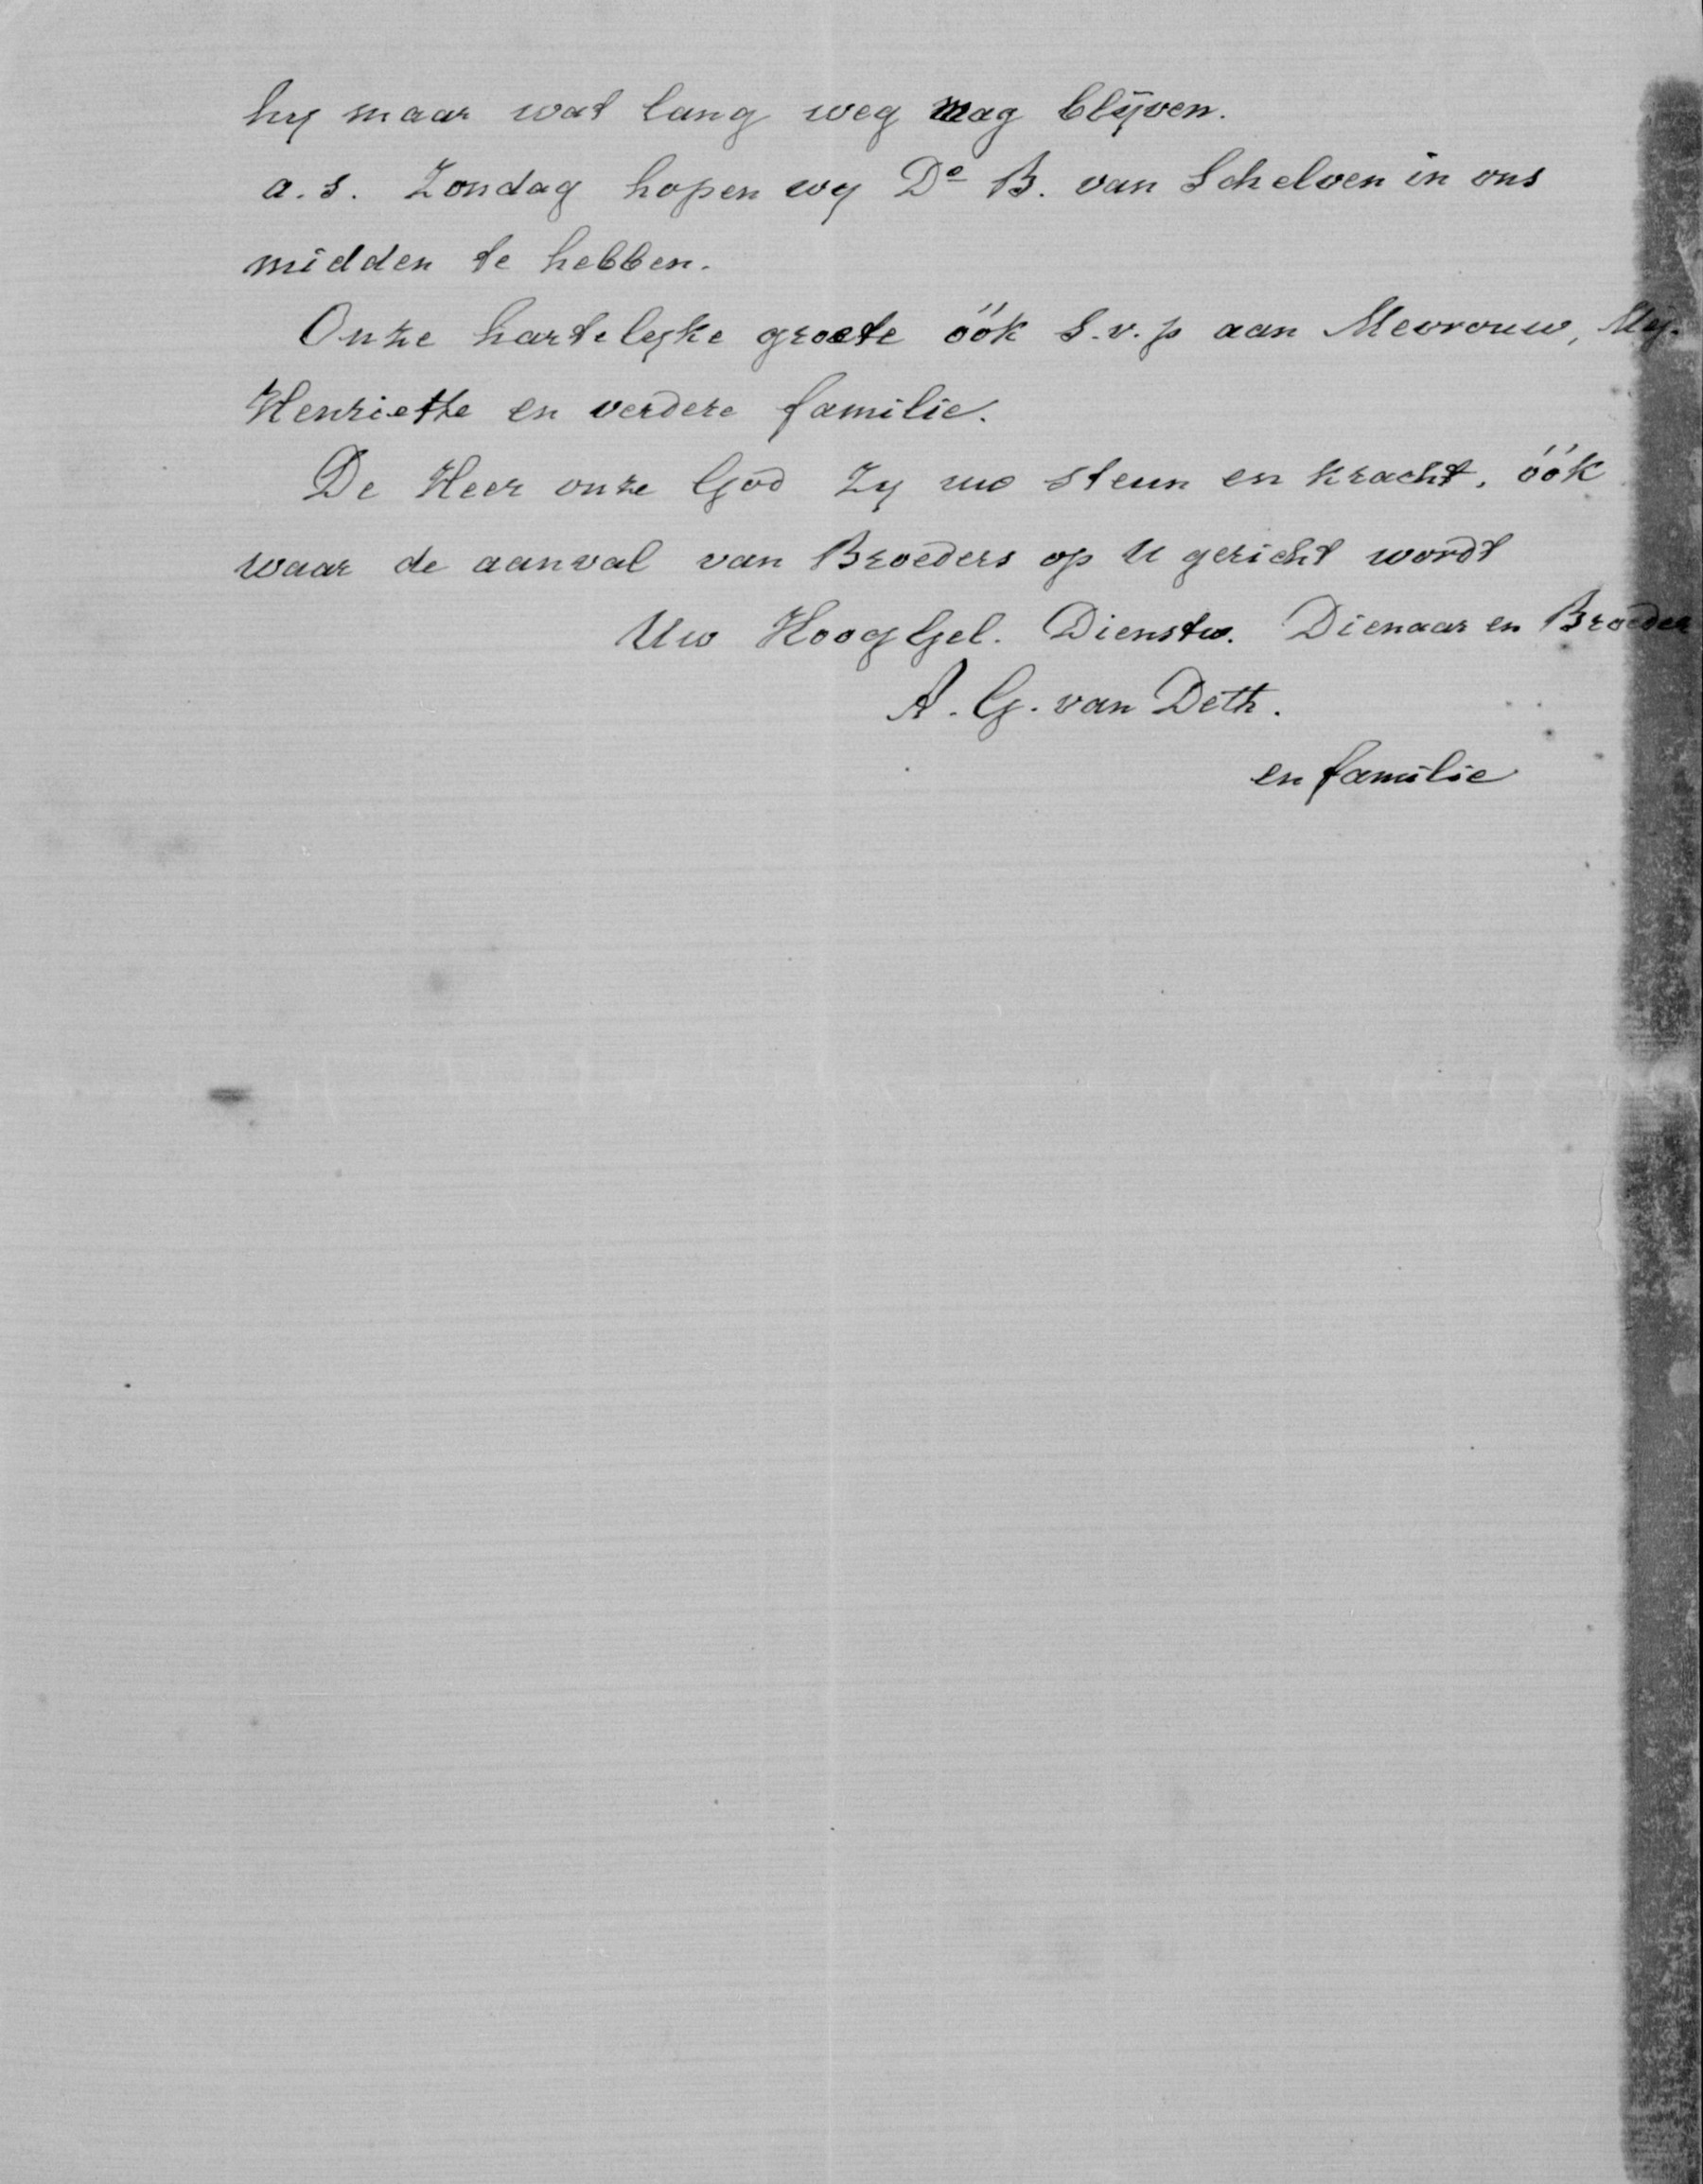 hy maar wat lang weg mag blijven.
a.s. Zondag hopen wy Ds B. van Schelven in ons
midden te hebben.
Onze hartelyke groete óók s.v.p aan Mevrouw, Mej.
Henriette en verdere familie.
De Heer onze God zy uw steun en kracht, óók
waar de aanval van Broeders op U gericht wordt
Uw HoogGel. Dienstw. Dienaar en Broeder
A. G. van Deth.
en familie